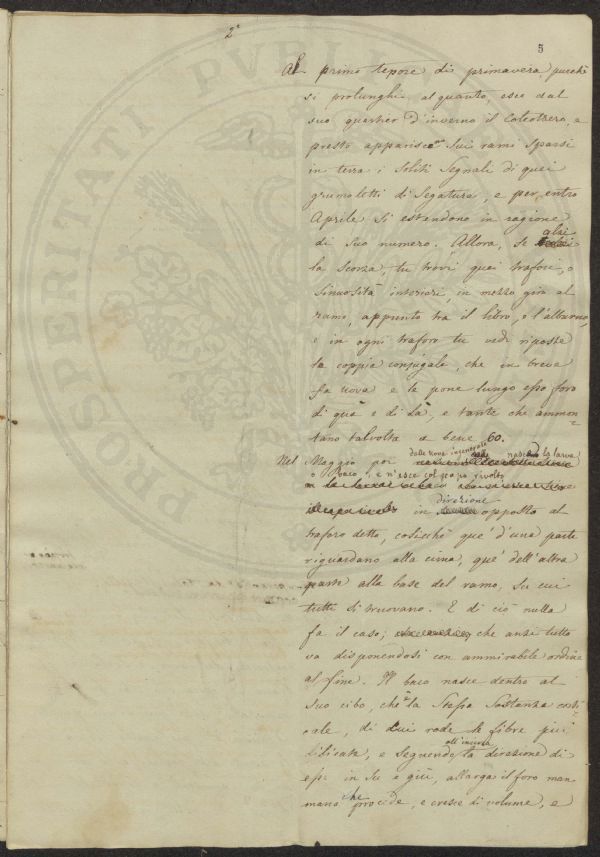 2°
5
Al primo tepore di primavera, purchè
si prolunghi alquanto, esce dal
suo quartier d'inverno il Coleottero, e
presto appariscon sui rami sparsi
in terra i soliti segnali di quei
grumoletti di segatura, e per entro
Aprile si estendono in ragione
di suo numero. Allora, se alzi
la scorza, tu trovi quei trafori, o
sinuosità interiori, in mezzo giro al
ramo, appunto tra il libro, e l'alburno,
e in ogni traforo tu vedi riposte
la coppia conjugale, che in breve
fa uova e le pone lungo esso foro
di quà e di là, e tante che ammon-
tano talvolta a bene 60.
Nel Maggio poi dalle uova ingenerate nasce la larva
o Baco, e n'esce col capo rivolto
in direzione opposto al
traforo detto, cosicchè que' d'una parte
riguardano alla cima, que' dell'altra
parte alla base del ramo, su cui
tutti si truovano. E di ciò nulla
fa il caso; che anzi tutto
va disponendosi con ammirabile ordine
al fine. Il baco nasce dentro al
suo cibo, che è la stessa sostanza corti-
cale, di cui rode le fibre più
dilicate, e seguendo all'insù la direzione di
esse in su e giù, allarga il foro man
mano che procede, e cresce di volume, e